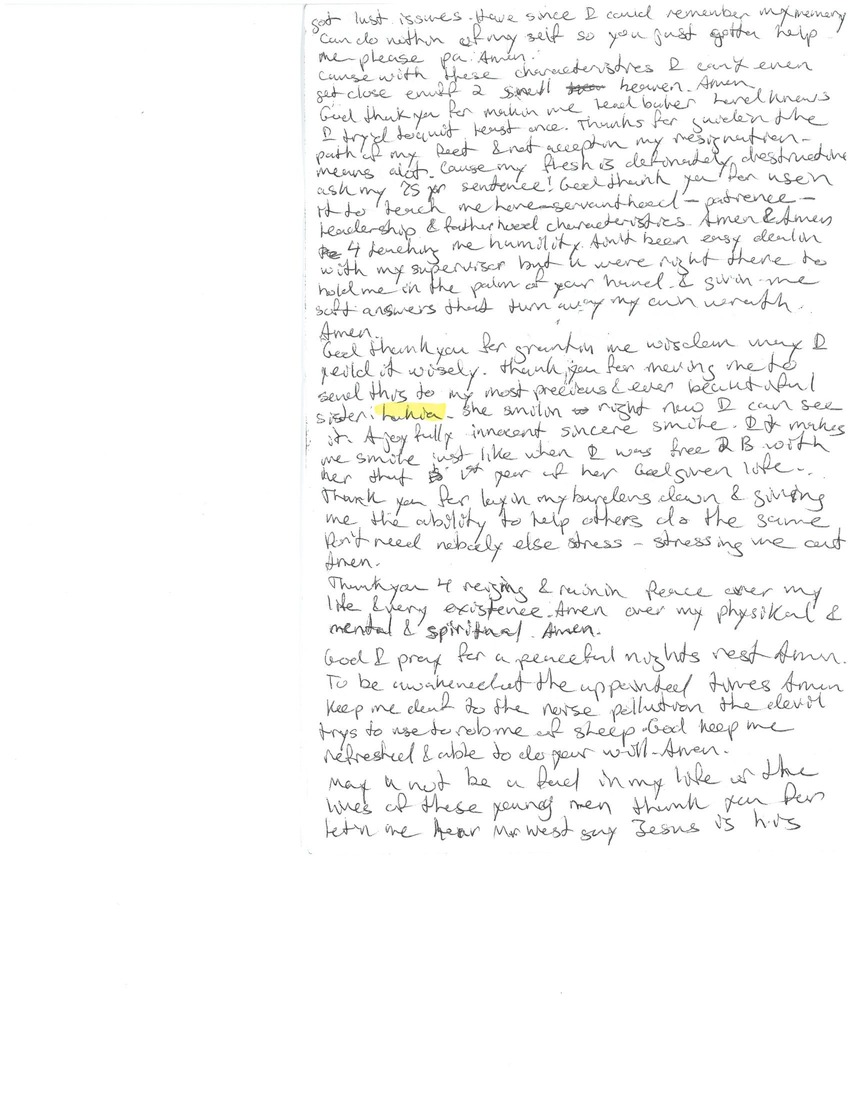 got lust issues. Have since I could remember my memory
Can do nothin of my self so you just gotta help
me please pa. Amen.
Cause with these characteristics I can't even
get close enuff 2 smell heaven. Amen
God thank you for makin me head baker Lord knows
I try'd to quit least once. Thanks for guiden the
path of my feet & not acceptin my resignation -
means alot. Cause my flesh is definately destructive
ask my 25 yr sentence! God thank you for usen
it to teach me love - servanthood - patience -
leadership & fatherhood characteristics. Amen & Amen
4 teaching me humility. Ain't been easy dealin
with my supervisor but u were right there to
hold me in the palm of your hand & givin me
soft answers that turn away my own wrath.
Amen.
God thank you for grantin me wisdom may I
yeild it wisely. Thank you for moving me to
send this to my most precious & ever beautiful
sister: She smilin right now I can see
it. A joy fully innocent sincere smile. It makes
me smile just like when I was free 2 B with
her that 1st year of her God given life..
Thank you for layin my burdens down & giving
me the ability to help others do the same
Don't need nobody else stress - stressing me out
Amen.
Thank you 4 reigning & runin Peace over my
life & very existence. Amen over my physikal &
mental & spiritual. Amen.
God I pray for a peaceful nights rest Amen.
To be awakened at the appointed times Amen
Keep me deaf to the noise pollution the devil
trys to use to rob me of sleep. God keep me
refreshed & able to do your will. Amen.
May u not be a fad in my life or the
lives of these young men thank you for
let'n me hear Mr West say Jesus is his